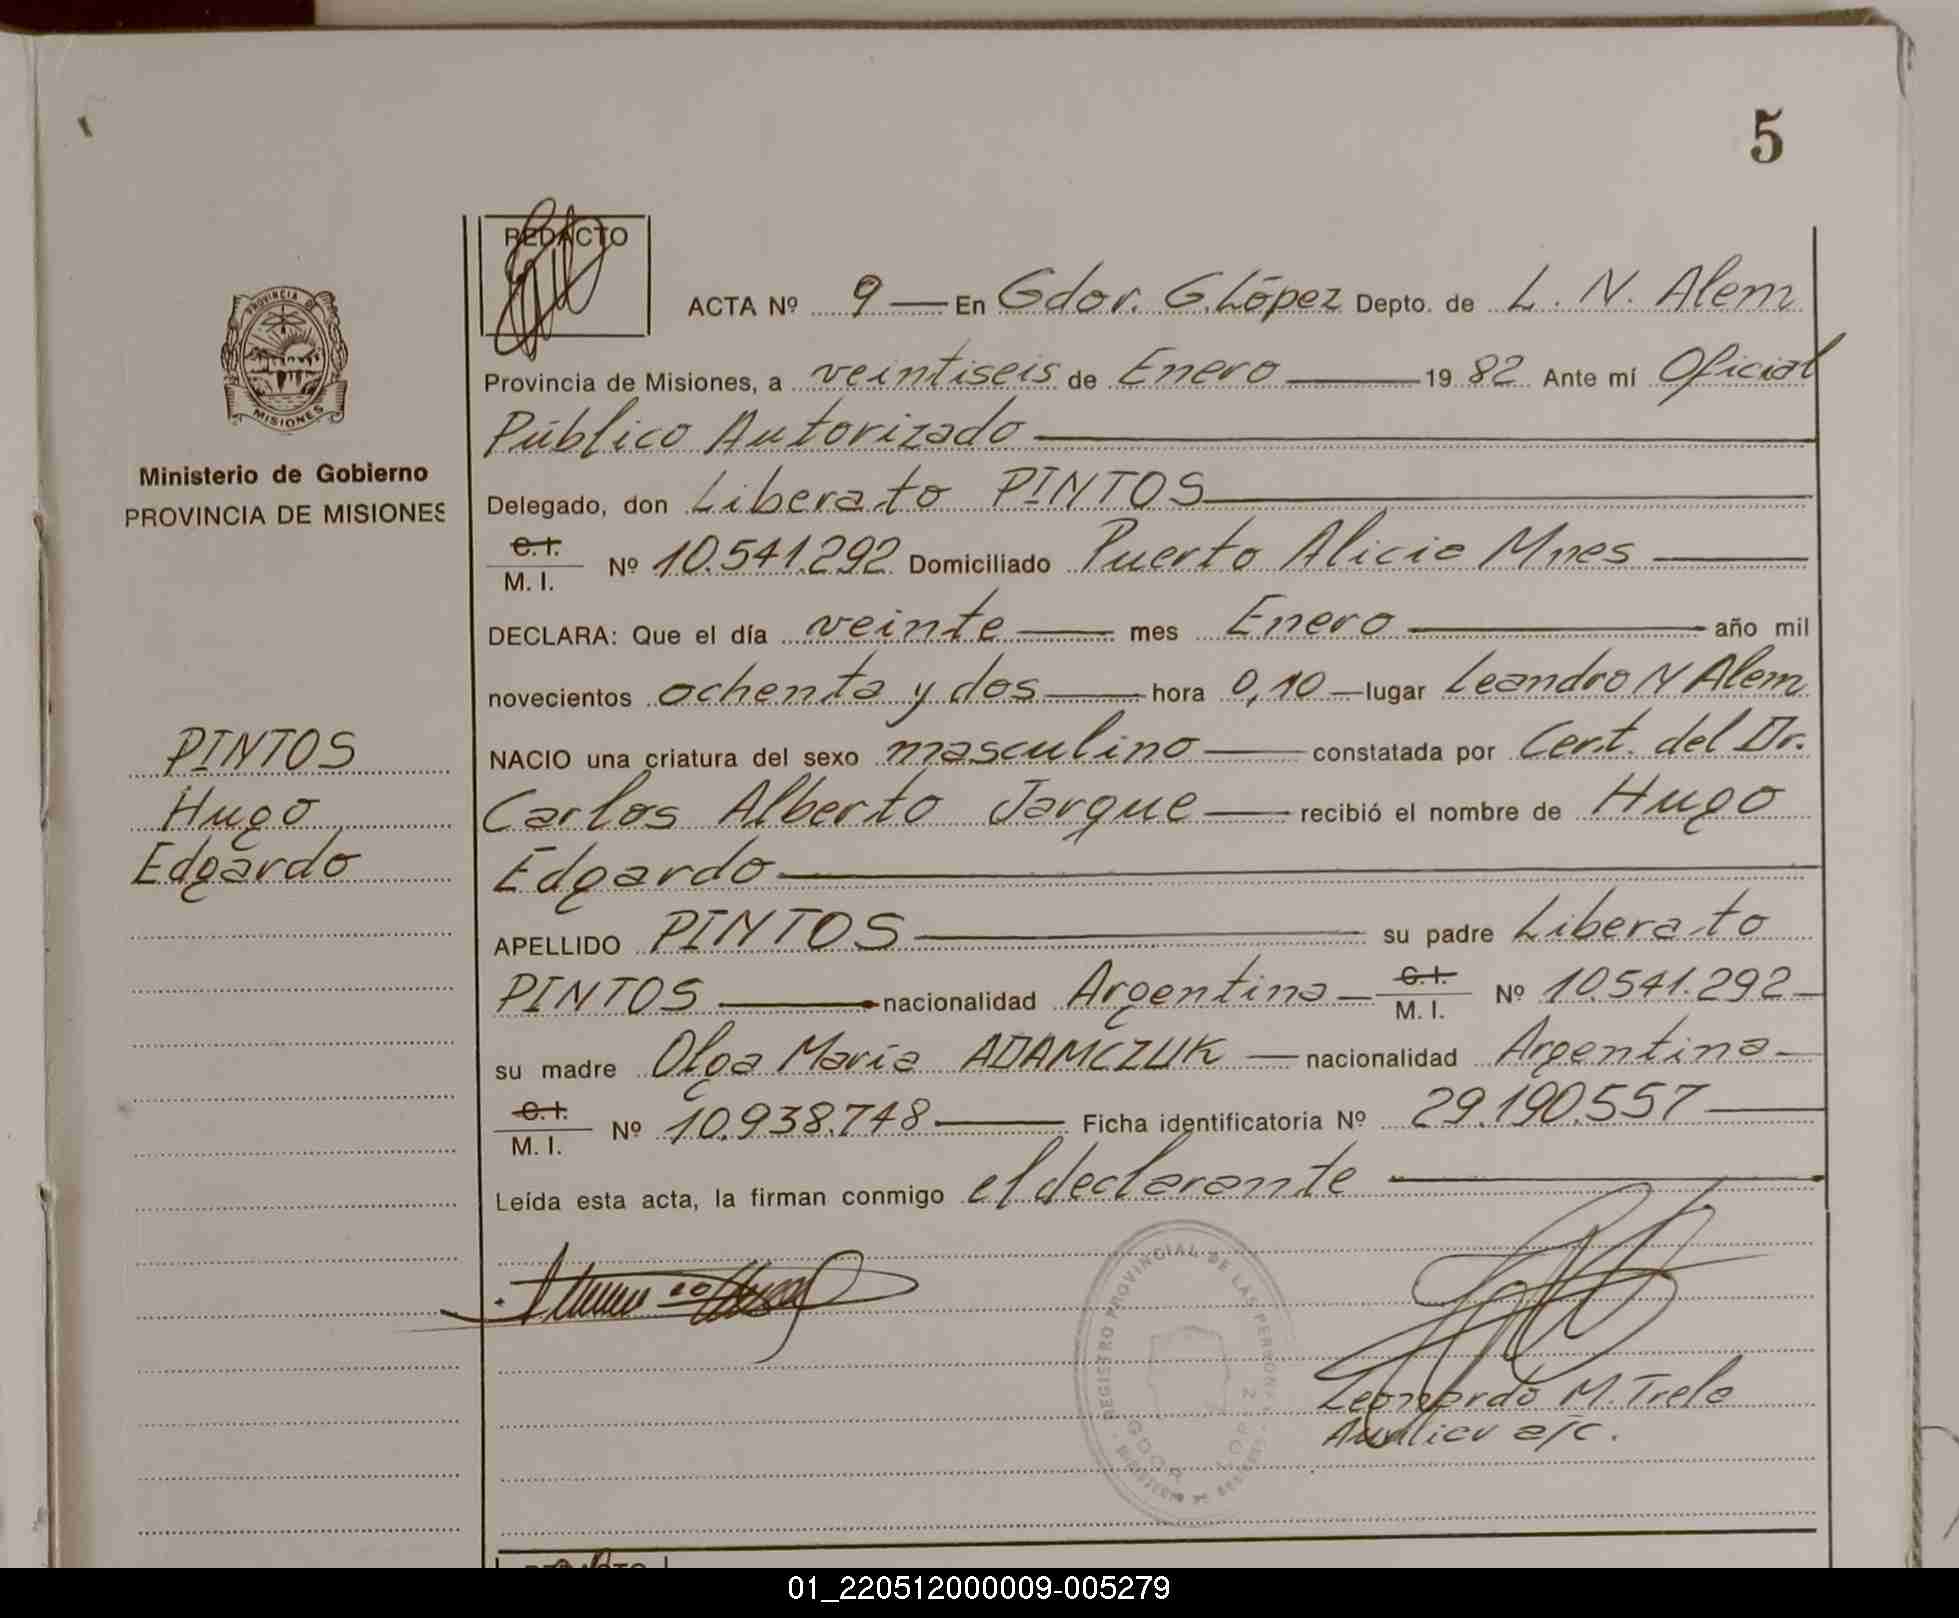 5
REDACTO
ACTA Nº 9 En Gdor. G. López Depto. de L. N. Alem
Provincia de Misiones, a veintiseis de Enero 19 82 Ante mí Oficial
Público Autorizado
Delegado, don Liberato PINTOS
C. I.
M. I. Nº 10.541.292 Domiciliado Puerto Alicia Mnes
DECLARA: Que el día veinte mes Enero año mil
novecientos ochenta y dos hora 0,10 lugar Leandro N Alem
NACIO una criatura del sexo masculino constatada por Cert. del Dr.
Carlos Alberto Jarque recibió el nombre de Hugo
Edgardo
APELLIDO PINTOS su padre Liberato
PINTOS nacionalidad Argentina C. I. M. I. Nº 10.541.292
su madre Olga María ADAMCZUK nacionalidad Argentina
C. I.
M. I. Nº 10.938.748 Ficha identificatoria Nº 29.190.557
Leída esta acta, la firman conmigo el declarante
PROVINCIA DE
MISIONES
Ministerio de Gobierno
PROVINCIA DE MISIONES
PINTOS
Hugo
Edgardo
REGISTRO PROVINCIAL DE LAS PERSONAS
GDOR. LOPEZ
Leonardo M. Trela
a/c.
01_220512000009-005279